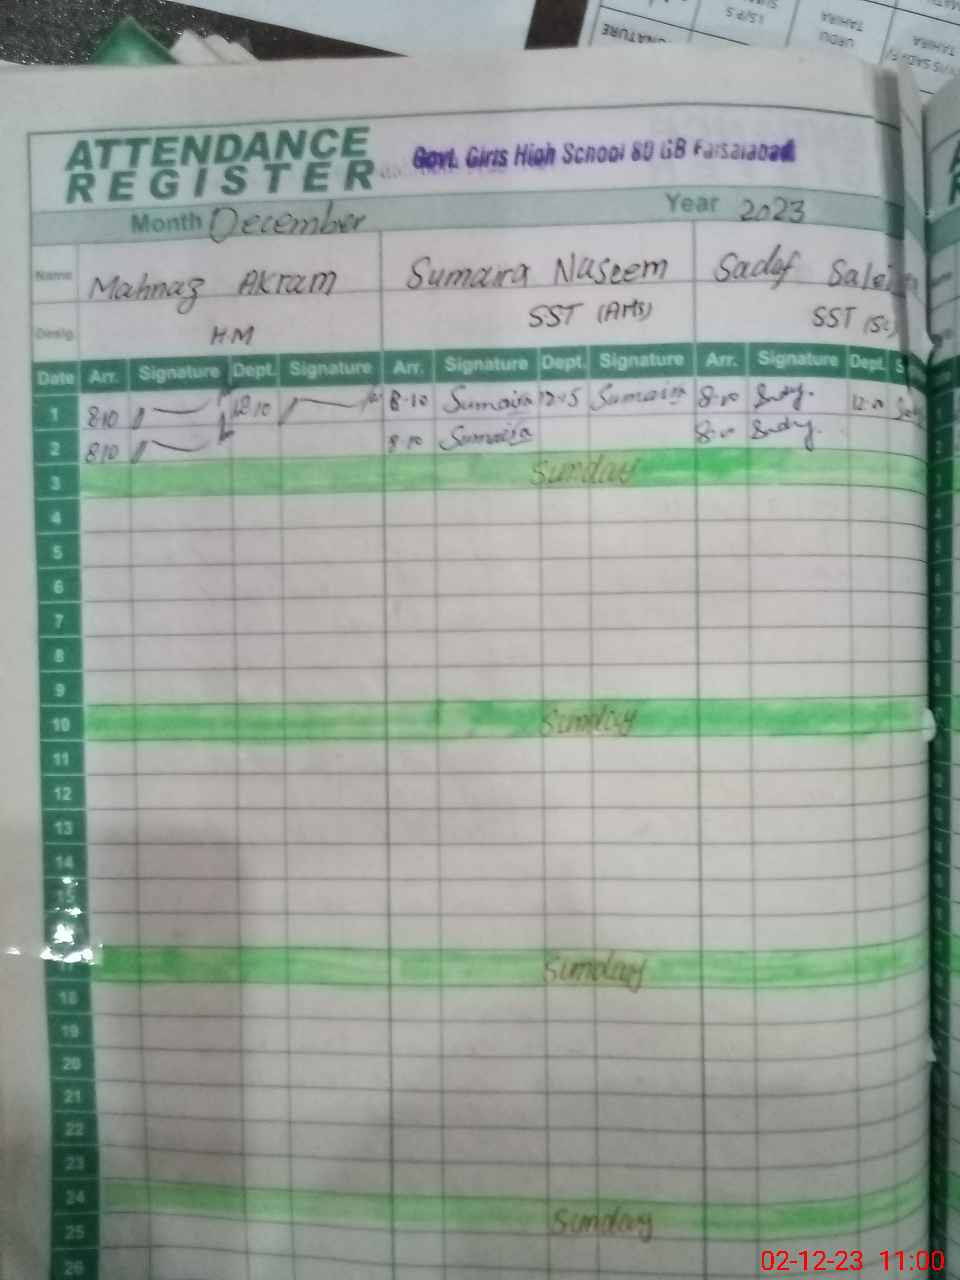 NATURE
I.S/P.S
URDU
TAHIRA
TAHIRA
ATTENDANCE
REGISTER
Govt. Girls High School 80 GB Faisalabad
Month December Year 2023
Name Mahnaz Akram Sumaira Naseem Sadaf
Desig. HM SST (Arts) SST (Sc)
Date Arr. Signature Dept. Signature Arr. Signature Dept. Signature Arr. Signature Dept. S
1 8:10 12:10 8-10 Sumaira 12-5 Sumaira
2 8:10 8-10 Sumaira
3 Sunday
4
5
6
7
8
9
10 Sunday
11
12
13
14
15
17 Sunday
18
19
20
21
22
23
24 Sunday
25
26
02-12-23 11:00